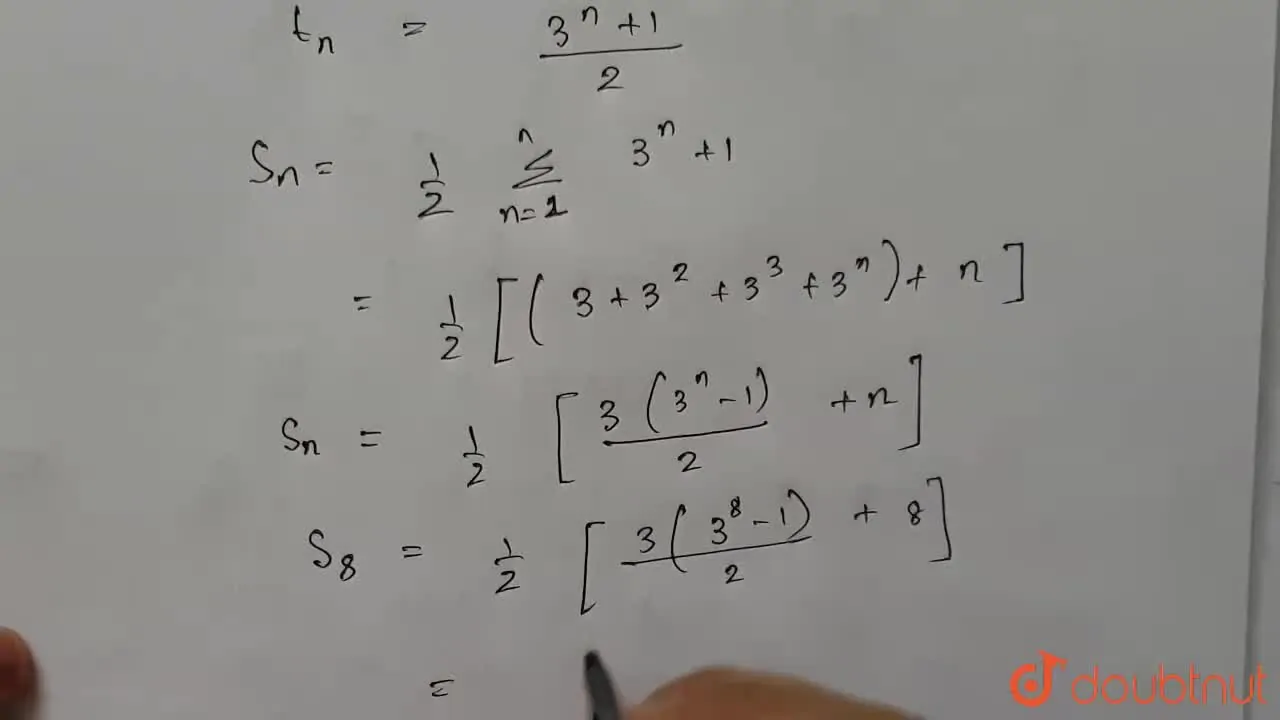 tₙ = (3ⁿ + 1)/2
Sₙ = 1/2 Σⁿₙ₌₁ 3ⁿ + 1
= 1/2 [(3 + 3² + 3³ + 3ⁿ) + n]
Sₙ = 1/2 [3(3ⁿ - 1)/2 + n]
S₈ = 1/2 [3(3⁸ - 1)/2 + 8]
=
doubtnut